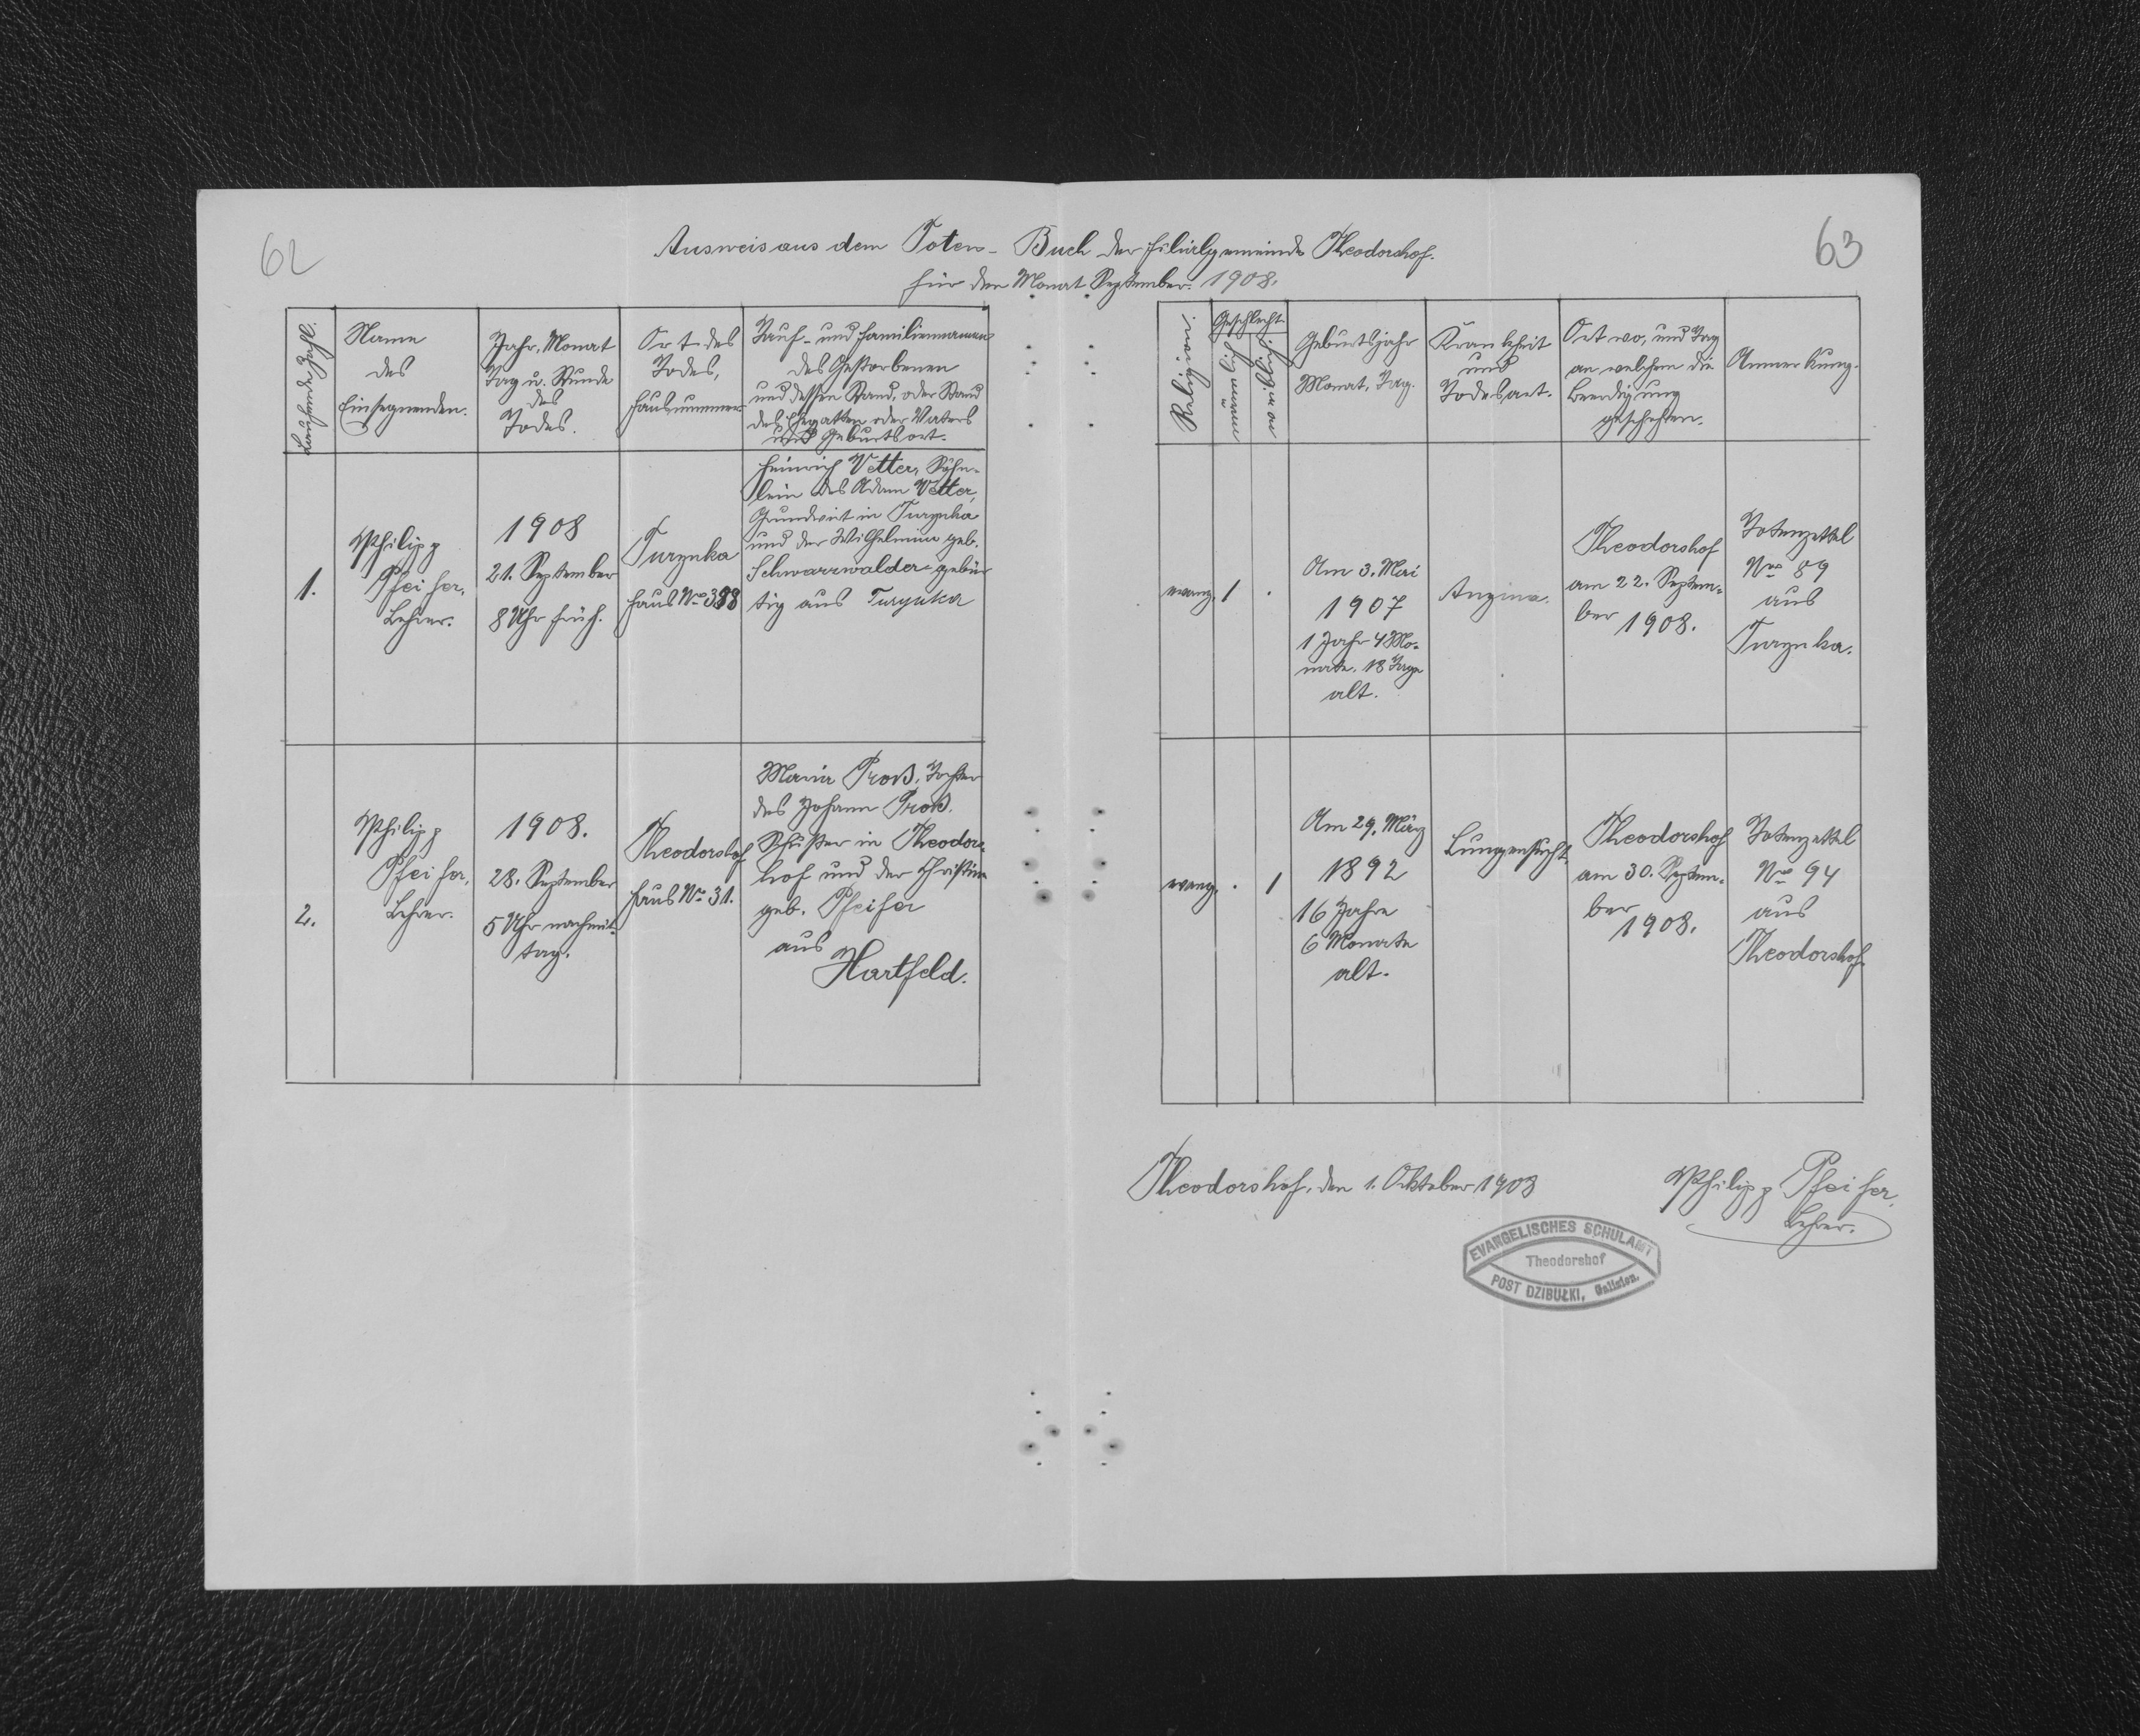 62
63
Ausweis aus dem Toten-Buch der Filialgemeinde Theodorshof.
für den Monat September 1908.
Name
des
Einsegnenden.
Jahr, Monat
Tag u. Stunde
des
Todes.
Ort des
Todes,
Hausnummer
Tauf- und Familienname
des Gestorbenen
und dessen Stand, oder Stand
des Ehegatten oder Vaters
und Geburtsort.
1.
Philipp
Pfeifer,
Lehrer.
1908
21. September
8 Uhr früh.
Turynka
Haus No 388
Heinrich Vetter, Söhn-
lein des Adam Vetter,
Grundwirt in Turynka
und der Wilhelmine geb.
Schwarzwalder gebür
tig aus Turynka
2.
Philipp
Pfeifer,
Lehrer.
1908.
28. September
5 Uhr nachmit-
tag.
Theodorshof
Haus No 31.
Maria Proß, Tochter
des Johann Proß.
Schuster in Theodors-
hof und der Christine
geb. Pfeifer
aus
Hartfeld.
Religion
Geschlecht
männlich
weiblich
Geburtsjahr
Monat, Tag.
Krankheit
und
Todesart.
Ort wo, und Tag
an welchem die
Beerdigung
geschehen.
Anmerkung.
evang.
1
.
Am 3. Mai
1907
1 Jahr 4 Mo-
nate. 18 Tage
alt.
Angina.
Theodorshof
am 22. Septem-
ber 1908.
Totenzettel
No 89
aus
Turynka.
evang.
.
1
Am 29. März
1892
16 Jahre
6 Monate
alt.
Lungensucht.
Theodorshof
am 30. Septem-
ber
1908.
Totenzettel
No 94
aus
Theodorshof.
Theodorshof, den 1. Oktober 1908
Philipp Pfeifer,
Lehrer.
EVANGELISCHES SCHULAMT
Theodorshof
POST DZIBUŁKI, Galizien.